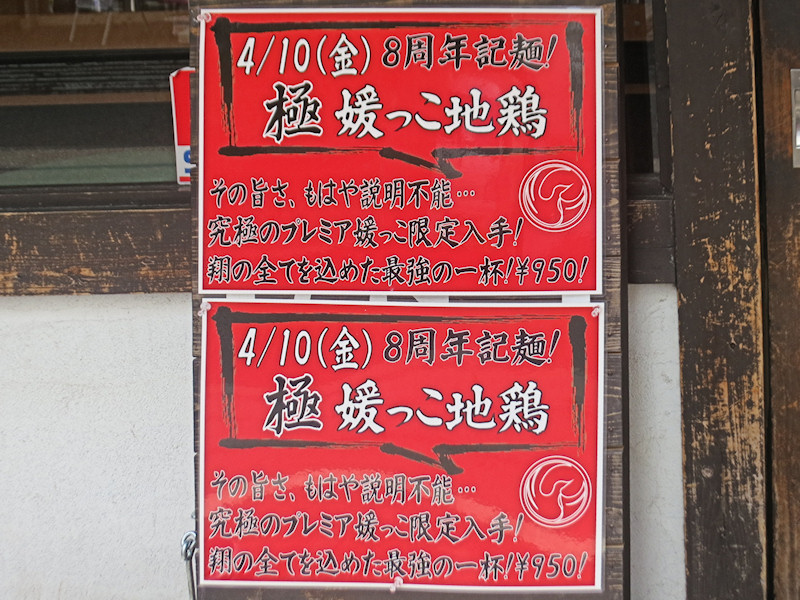 4/10(金) 8周年記麺!
極 媛っこ地鶏
その旨さ、もはや説明不能…
究極のプレミア媛っこ限定入手!
翔の全てを込めた最強の一杯!¥950!
4/10(金) 8周年記麺!
極 媛っこ地鶏
その旨さ、もはや説明不能…
究極のプレミア媛っこ限定入手!
翔の全てを込めた最強の一杯!¥950!